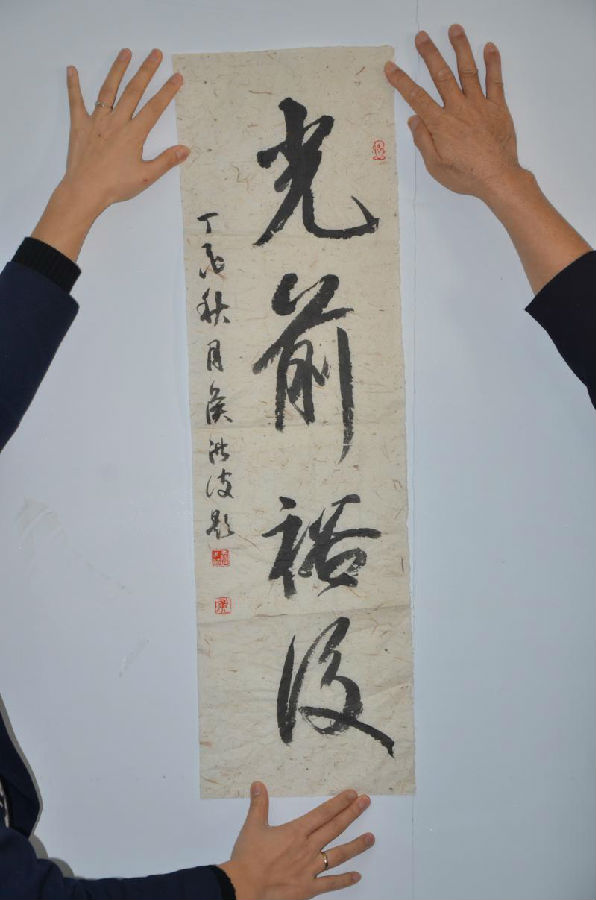 光前裕後
丁亥秋月侯洪波题